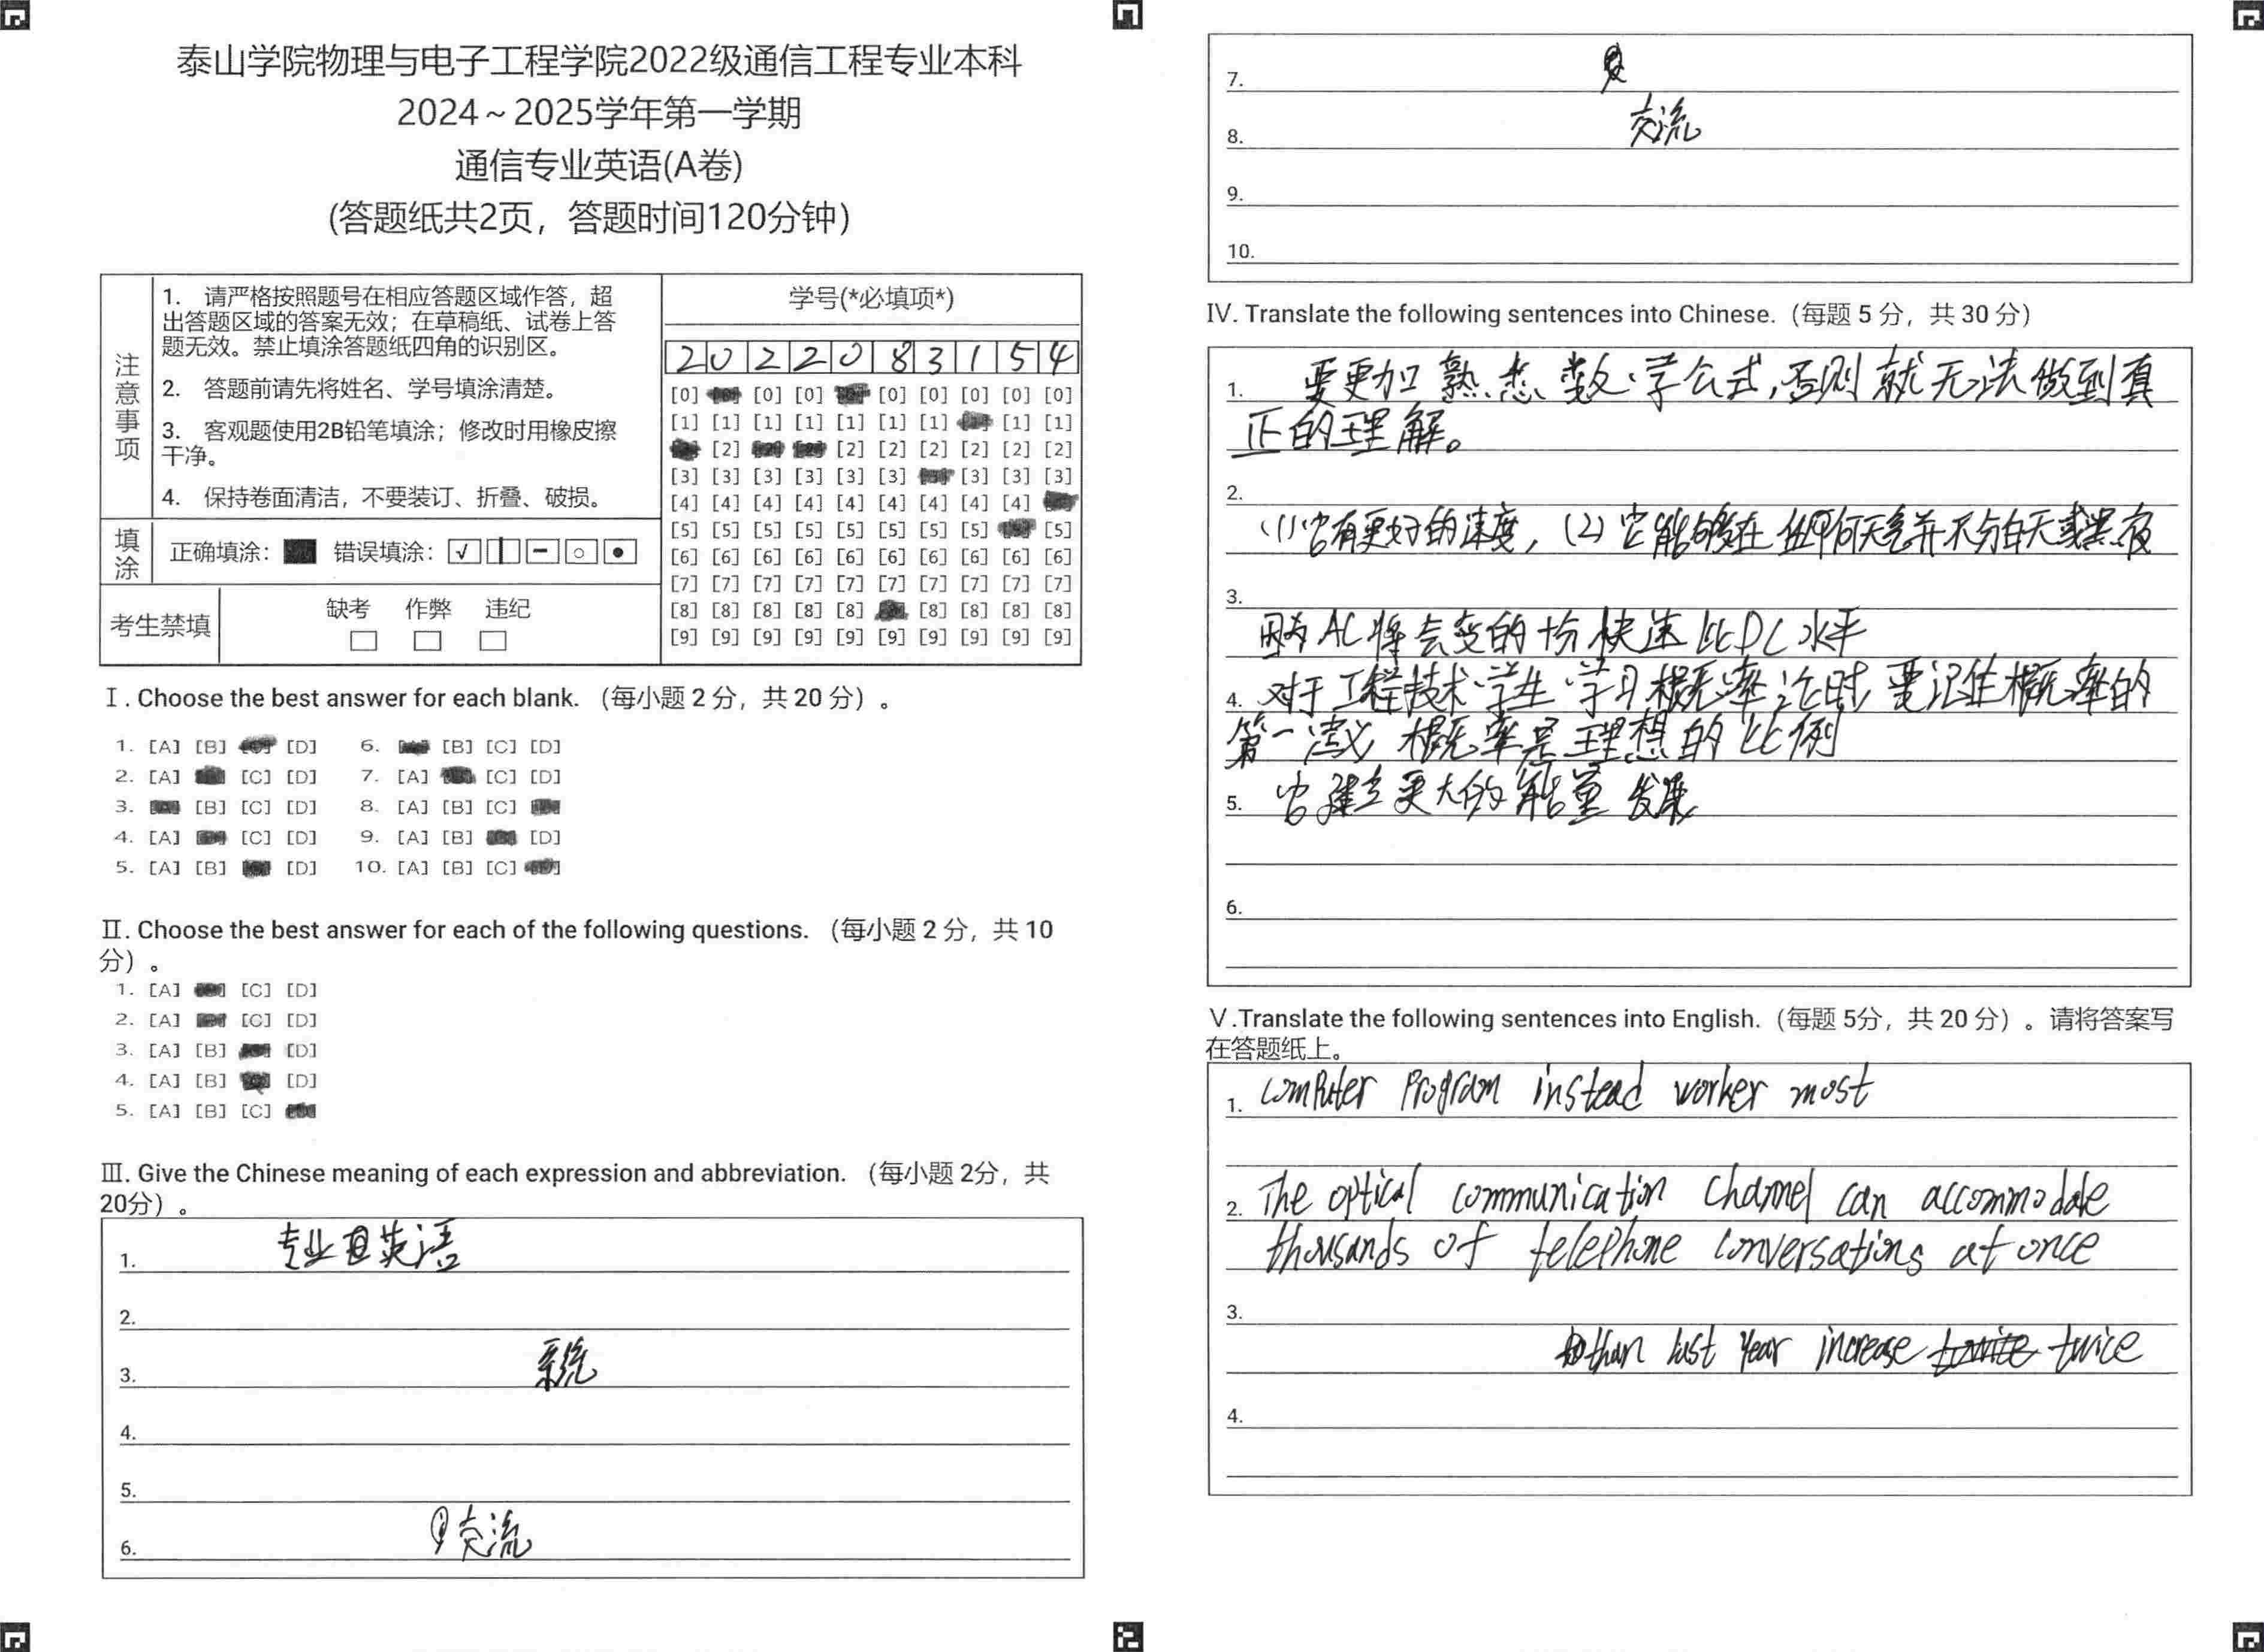 泰山学院物理与电子工程学院2022级通信工程专业本科
2024～2025学年第一学期
通信专业英语(A卷)
(答题纸共2页，答题时间120分钟)
注意事项
1. 请严格按照题号在相应答题区域作答，超
出答题区域的答案无效；在草稿纸、试卷上答
题无效。禁止填涂答题纸四角的识别区。
2. 答题前请先将姓名、学号填涂清楚。
3. 客观题使用2B铅笔填涂；修改时用橡皮擦
干净。
4. 保持卷面清洁，不要装订、折叠、破损。
填涂 正确填涂： 错误填涂：
考生禁填 缺考 作弊 违纪
学号(*必填项*)
2022083154
[0] [0] [0] [0] [0] [0] [0] [0]
[1] [1] [1] [1] [1] [1] [1] [1] [1]
[2] [2] [2] [2] [2] [2] [2]
[3] [3] [3] [3] [3] [3] [3] [3] [3]
[4] [4] [4] [4] [4] [4] [4] [4] [4]
[5] [5] [5] [5] [5] [5] [5] [5] [5]
[6] [6] [6] [6] [6] [6] [6] [6] [6] [6]
[7] [7] [7] [7] [7] [7] [7] [7] [7] [7]
[8] [8] [8] [8] [8] [8] [8] [8] [8]
[9] [9] [9] [9] [9] [9] [9] [9] [9] [9]
Ⅰ. Choose the best answer for each blank. （每小题 2 分，共 20 分）。
1. [A] [B] [D] 6. [B] [C] [D]
2. [A] [C] [D] 7. [A] [C] [D]
3. [B] [C] [D] 8. [A] [B] [C]
4. [A] [C] [D] 9. [A] [B] [D]
5. [A] [B] [D] 10. [A] [B] [C]
Ⅱ. Choose the best answer for each of the following questions. （每小题 2 分，共 10
分）。
1. [A] [C] [D]
2. [A] [C] [D]
3. [A] [B] [D]
4. [A] [B] [D]
5. [A] [B] [C]
Ⅲ. Give the Chinese meaning of each expression and abbreviation. （每小题 2分，共
20分）。
1. 专业英语
2.
3. 系统
4.
5.
6. 交流
7.
8. 交流
9.
10.
Ⅳ. Translate the following sentences into Chinese.（每题 5 分，共 30 分）
1. 要更加熟悉数学公式，否则就无法做到真
正的理解。
2.
(1)它有更好的速度，(2)它能够在任何天气并不分白天或黑夜
3.
因为AC将会变的十分快速比DC水平
4. 对于工程技术学生学习概率论时，要记住概率的
第一定义概率是理想的比例
5. 它建立更大的能量发展
6.
Ⅴ.Translate the following sentences into English.（每题 5分，共 20 分）。请将答案写
在答题纸上。
1. computer program instead worker most
2. The optical communication channel can accommodate
thousands of telephone conversations at once
3.
than last year increase twice
4.